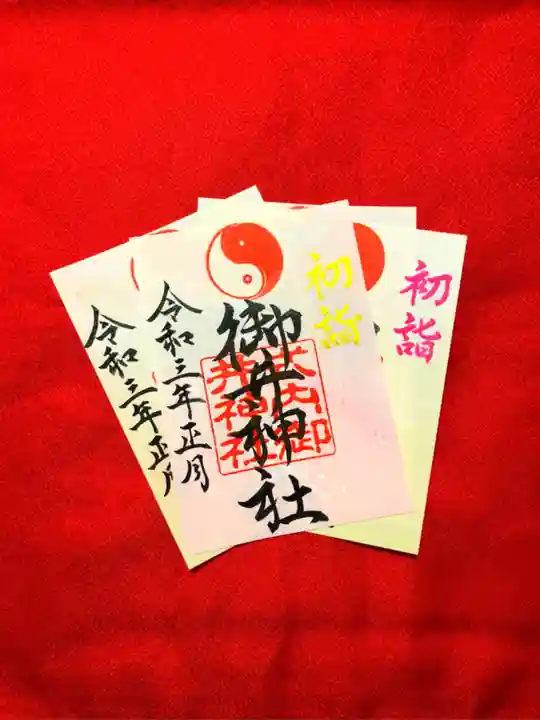 初詣
初詣
御井神社
令和三年正月
令和三年正月